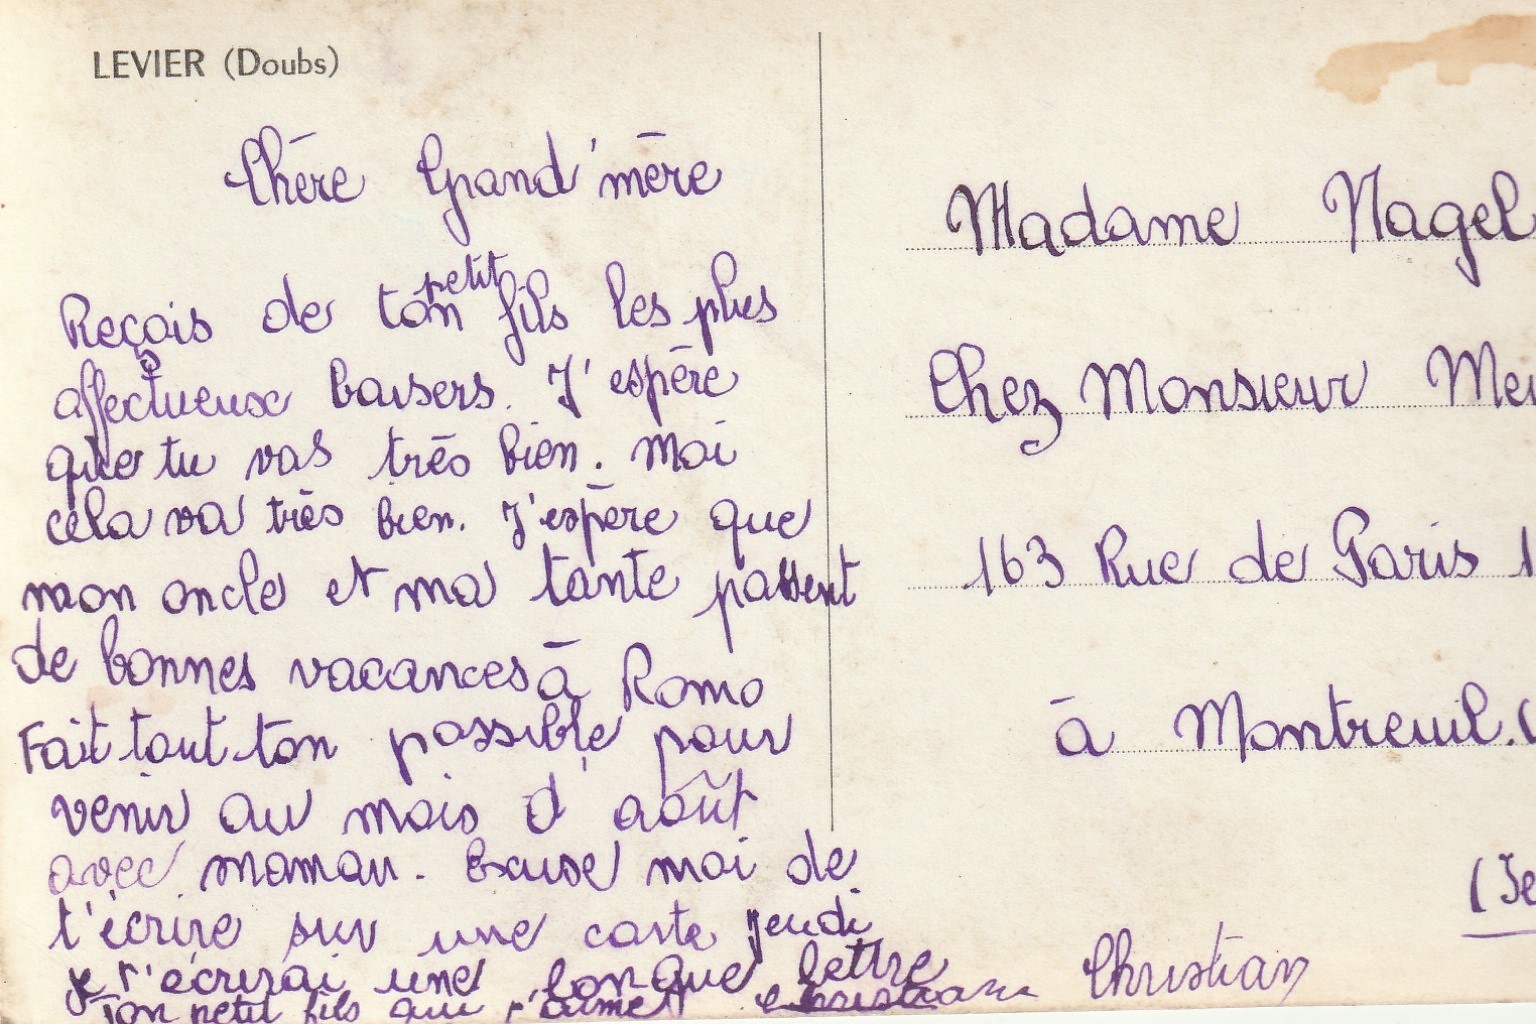 LEVIER (Doubs)
Chère Grand'mère
Reçois de ton petit fils les plus
affectueux baisers. J'espère
que tu vas très bien. Moi
cela va très bien. J'espère que
mon oncle et ma tante passent
de bonnes vacances à Romo
Fait tout ton possible pour
venir au mois d'août
avec maman. Excuse moi de
t'écrire sur une carte jeudi
je t'écrirai une longue lettre
Ton petit fils qui t'aime Christian
Christian
Madame Nagel
Chez Monsieur
163 Rue de Paris
à Montreuil.